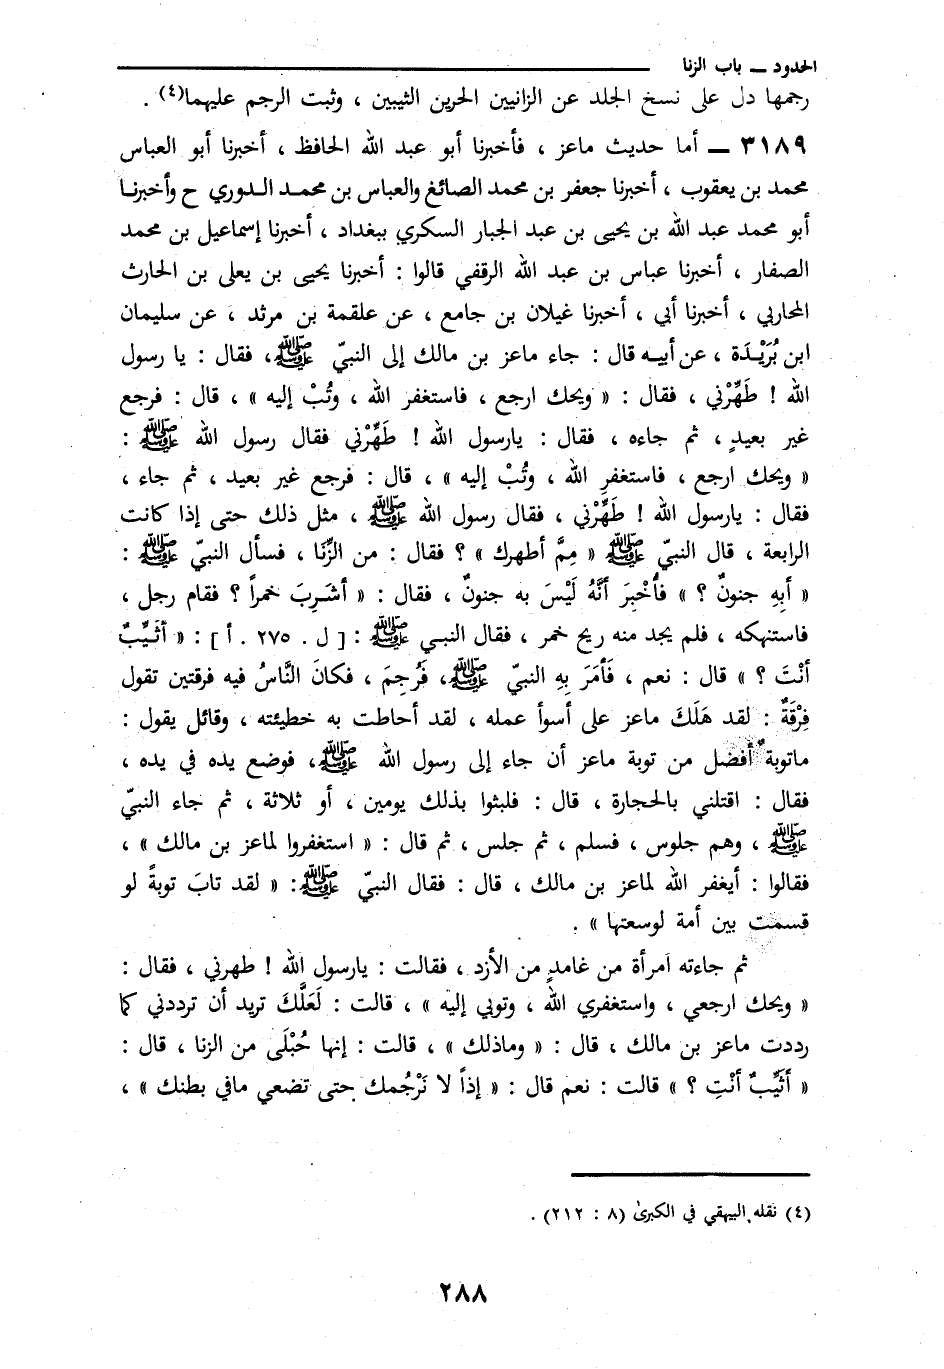 الحدود ــ باب الزنا
رجمها دل على نسخ الجلد عن الزانيين الحرين الثيبين ، وثبت الرجم عليهما(٤) .
٣١٨٩ ــ أما حديث ماعز ، فأخبرنا أبو عبد الله الحافظ ، أخبرنا أبو العباس
محمد بن يعقوب ، أخبرنا جعفر بن محمد الصائغ والعباس بن محمـد الـدوري ح وأخبرنـا
أبو محمد عبد الله بن يحيى بن عبد الجبار السكري ببغداد ، أخبرنا إسماعيل بن محمد
الصفار ، أخبرنا عباس بن عبد الله الرقفي قالوا : أخبرنا يحيى بن يعلى بن الحارث
المحاربي ، أخبرنا أبي ، أخبرنا غيلان بن جامع ، عن علقمة بن مرثد ، عن سليمان
ابن بُرَيْـدَة ، عن أبيـه قال : جاء ماعز بن مالك إلى النبيّ ﷺ، فقال : يا رسول
الله ! طَهِّرْني ، فقال : « ويحك ارجع ، فاستغفر الله ، وتُبْ إليه » ، قال : فرجع
غير بعيدٍ ، ثم جاءه ، فقال : يارسول الله ! طَهِّرْني فقال رسول الله ﷺ :
« ويحك ارجع ، فاستغفرِ الله ، وتُبْ إليه » ، قال : فرجع غير بعيد ، ثم جاء ،
فقال : يارسول الله ! طَهِّرْني ، فقال رسول الله ﷺ ، مثل ذلك حتى إذا كانت
الرابعة ، قال النبيّ ﷺ « مِمَّ أطهرك » ؟ فقال : من الزِّنَا ، فسأل النبيّ ﷺ :
« أبِهِ جنونٌ ؟ » فأُخْبِرَ أنَّهُ لَيْسَ به جنونٌ ، فقال : « أشَـرِبَ خمراً ؟ فقام رجل ،
فاستنهكه ، فلم يجد منه ريح خمر ، فقال النبـي ﷺ : [ ل . ٢٧٥ . أ ] : « أثَـيِّبٌ
أنْتَ ؟ » قال : نعم ، فَأمَرَ بِهِ النبيّ ﷺ، فَرُجِمَ ، فكانَ النَّاسُ فيه فرقتين تقول
فِرْقَةٌ : لقد هَلَكَ ماعز على أسوأ عمله ، لقد أحاطت به خطيئته ، وقائل يقول :
ماتوبة أفضل من توبة ماعز أن جاء إلى رسول الله ﷺ، فوضع يده في يده ،
فقال : اقتلني بالحجارة ، قال : فلبثوا بذلك يومين ، أو ثلاثة ، ثم جاء النبيّ
ﷺ ، وهم جلوس ، فسلم ، ثم جلس ، ثم قال : « استغفروا لماعز بن مالك » ،
فقالوا : أيغفر الله لماعز بن مالك ، قال : فقال النبيّ ﷺ: « لقد تابَ توبةً لو
قسمت بين أمة لوسعتها » .
ثم جاءته امرأة من غامدٍ من الأزد ، فقالت : يارسول الله ! طهرني ، فقال :
« ويحك ارجعي ، واستغفري الله ، وتوبي إليه » ، قالت : لَعَلَّكَ تريد أن ترددني كما
رددت ماعز بن مالك ، قال : « وماذلك » ، قالت : إنها حُبْلَى من الزنا ، قال :
« أثَيِّبٌ أنْتِ ؟ » قالت : نعم قال : « إذاً لا نَرْجُمك حتى تضعي مافي بطنك » ،
(٤) نقله البيهقي في الكبرىٰ (٨ : ٢١٢) .
٢٨٨